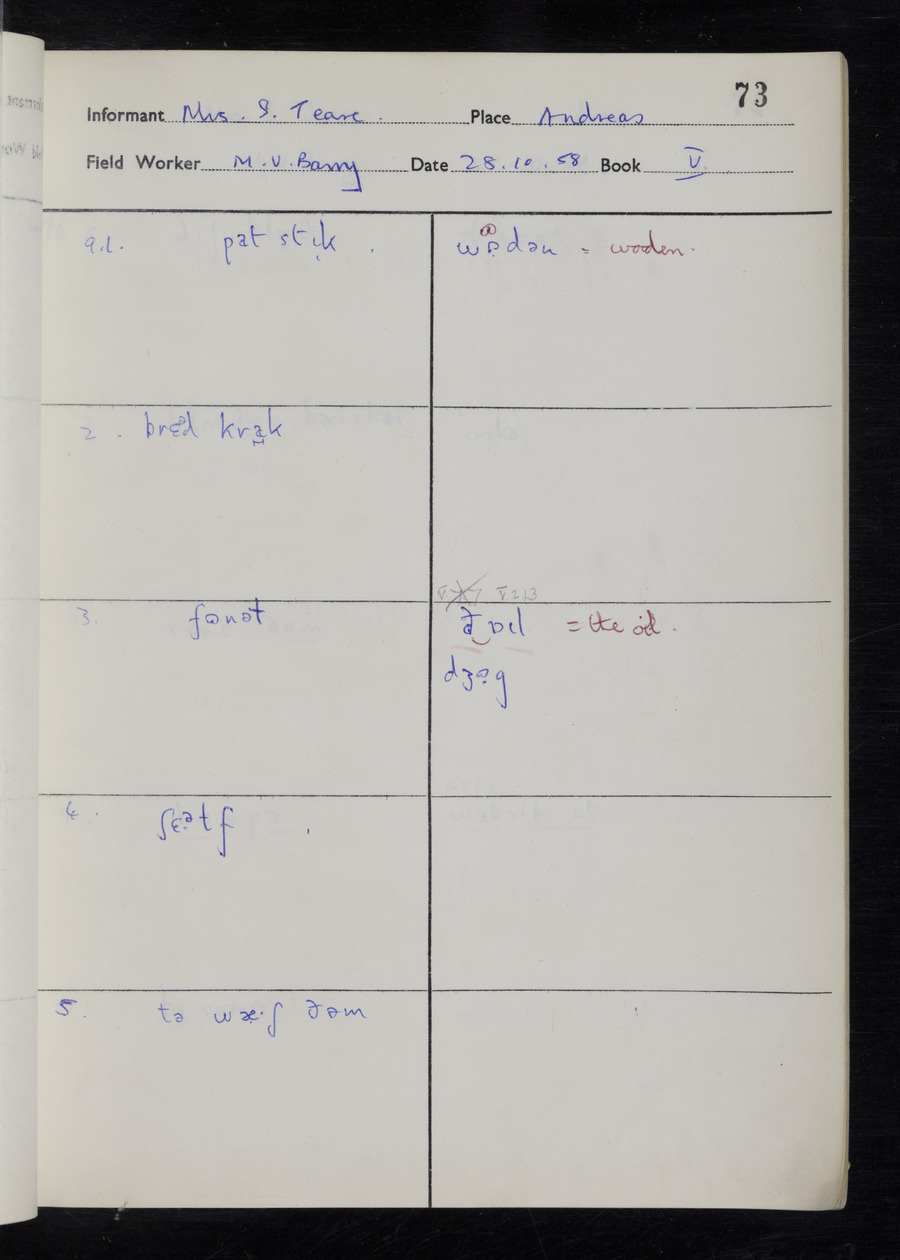 73
Informant Mrs. S. Teare. Place Andreas
Field Worker M.V. Barry Date 28.10.58 Book V
9.1. pat stɪk. wɒdən = wooden.
2. brɛəd kræk
V 213
3. fɒnət ð ɒɪl = the oil.
dʒɒg
4. ʃɛətf
5. tə wæ·ʃ ðəm